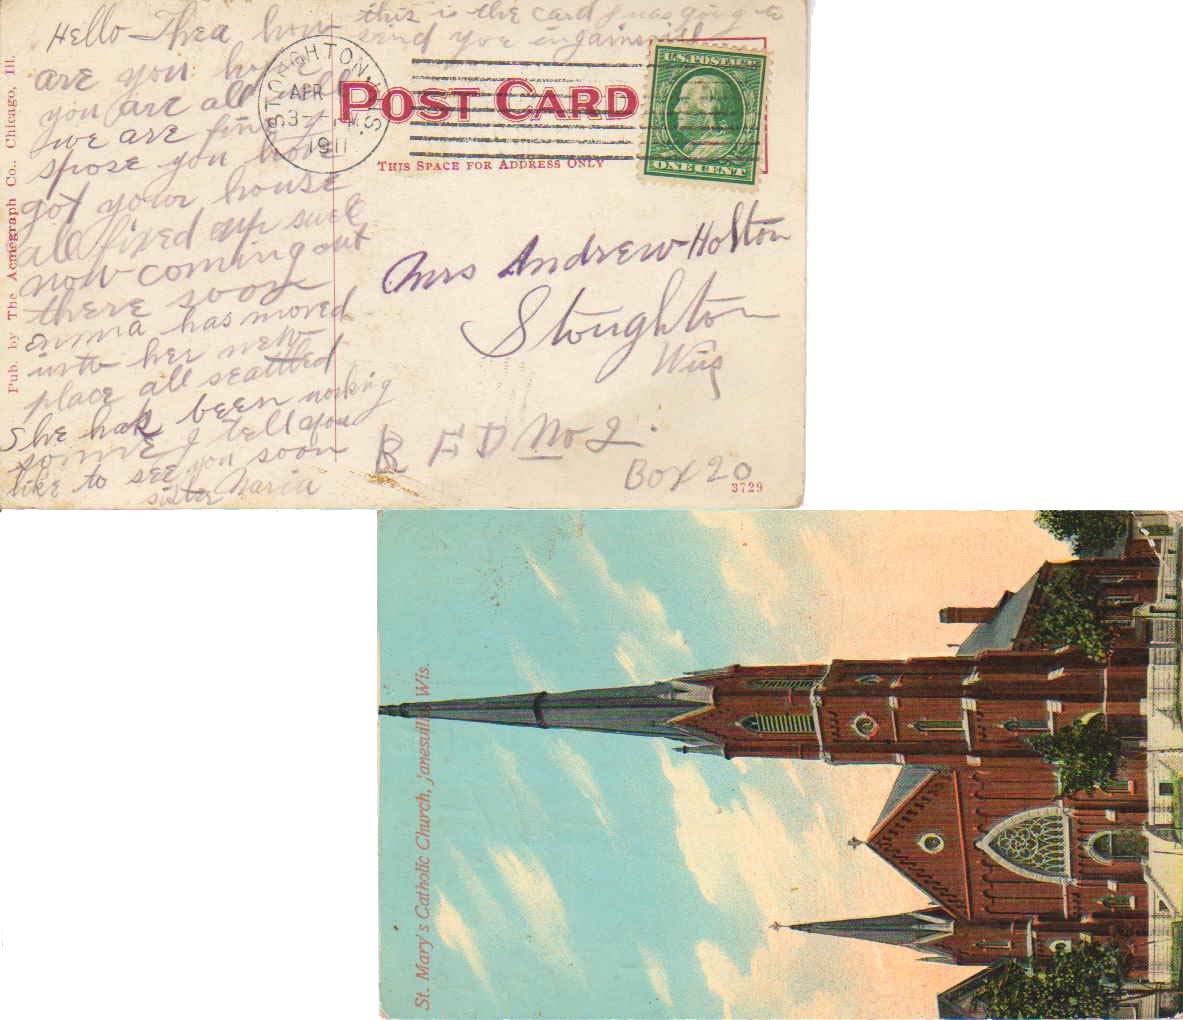 this is the card I was going to
send you in Jainsvill
Hello Thea how
are you hope
you are all well
we are fine I
spose you have
got your house
all fixed up swell
now coming out
there soon
emma has moved
into her new
place all seattled
She has been working
some I tell you
like to see you soon
sister Maria
STOUGHTON, WIS.
APR
3-
1911
POST CARD
THIS SPACE FOR ADDRESS ONLY
U.S. POSTAGE
ONE CENT
Mrs Andrew Holton
Stoughton
Wis
R F D No 2.
Box 20
3729
Pub. by The Acmegraph Co., Chicago, Ill.
St. Mary's Catholic Church, Janesville, Wis.